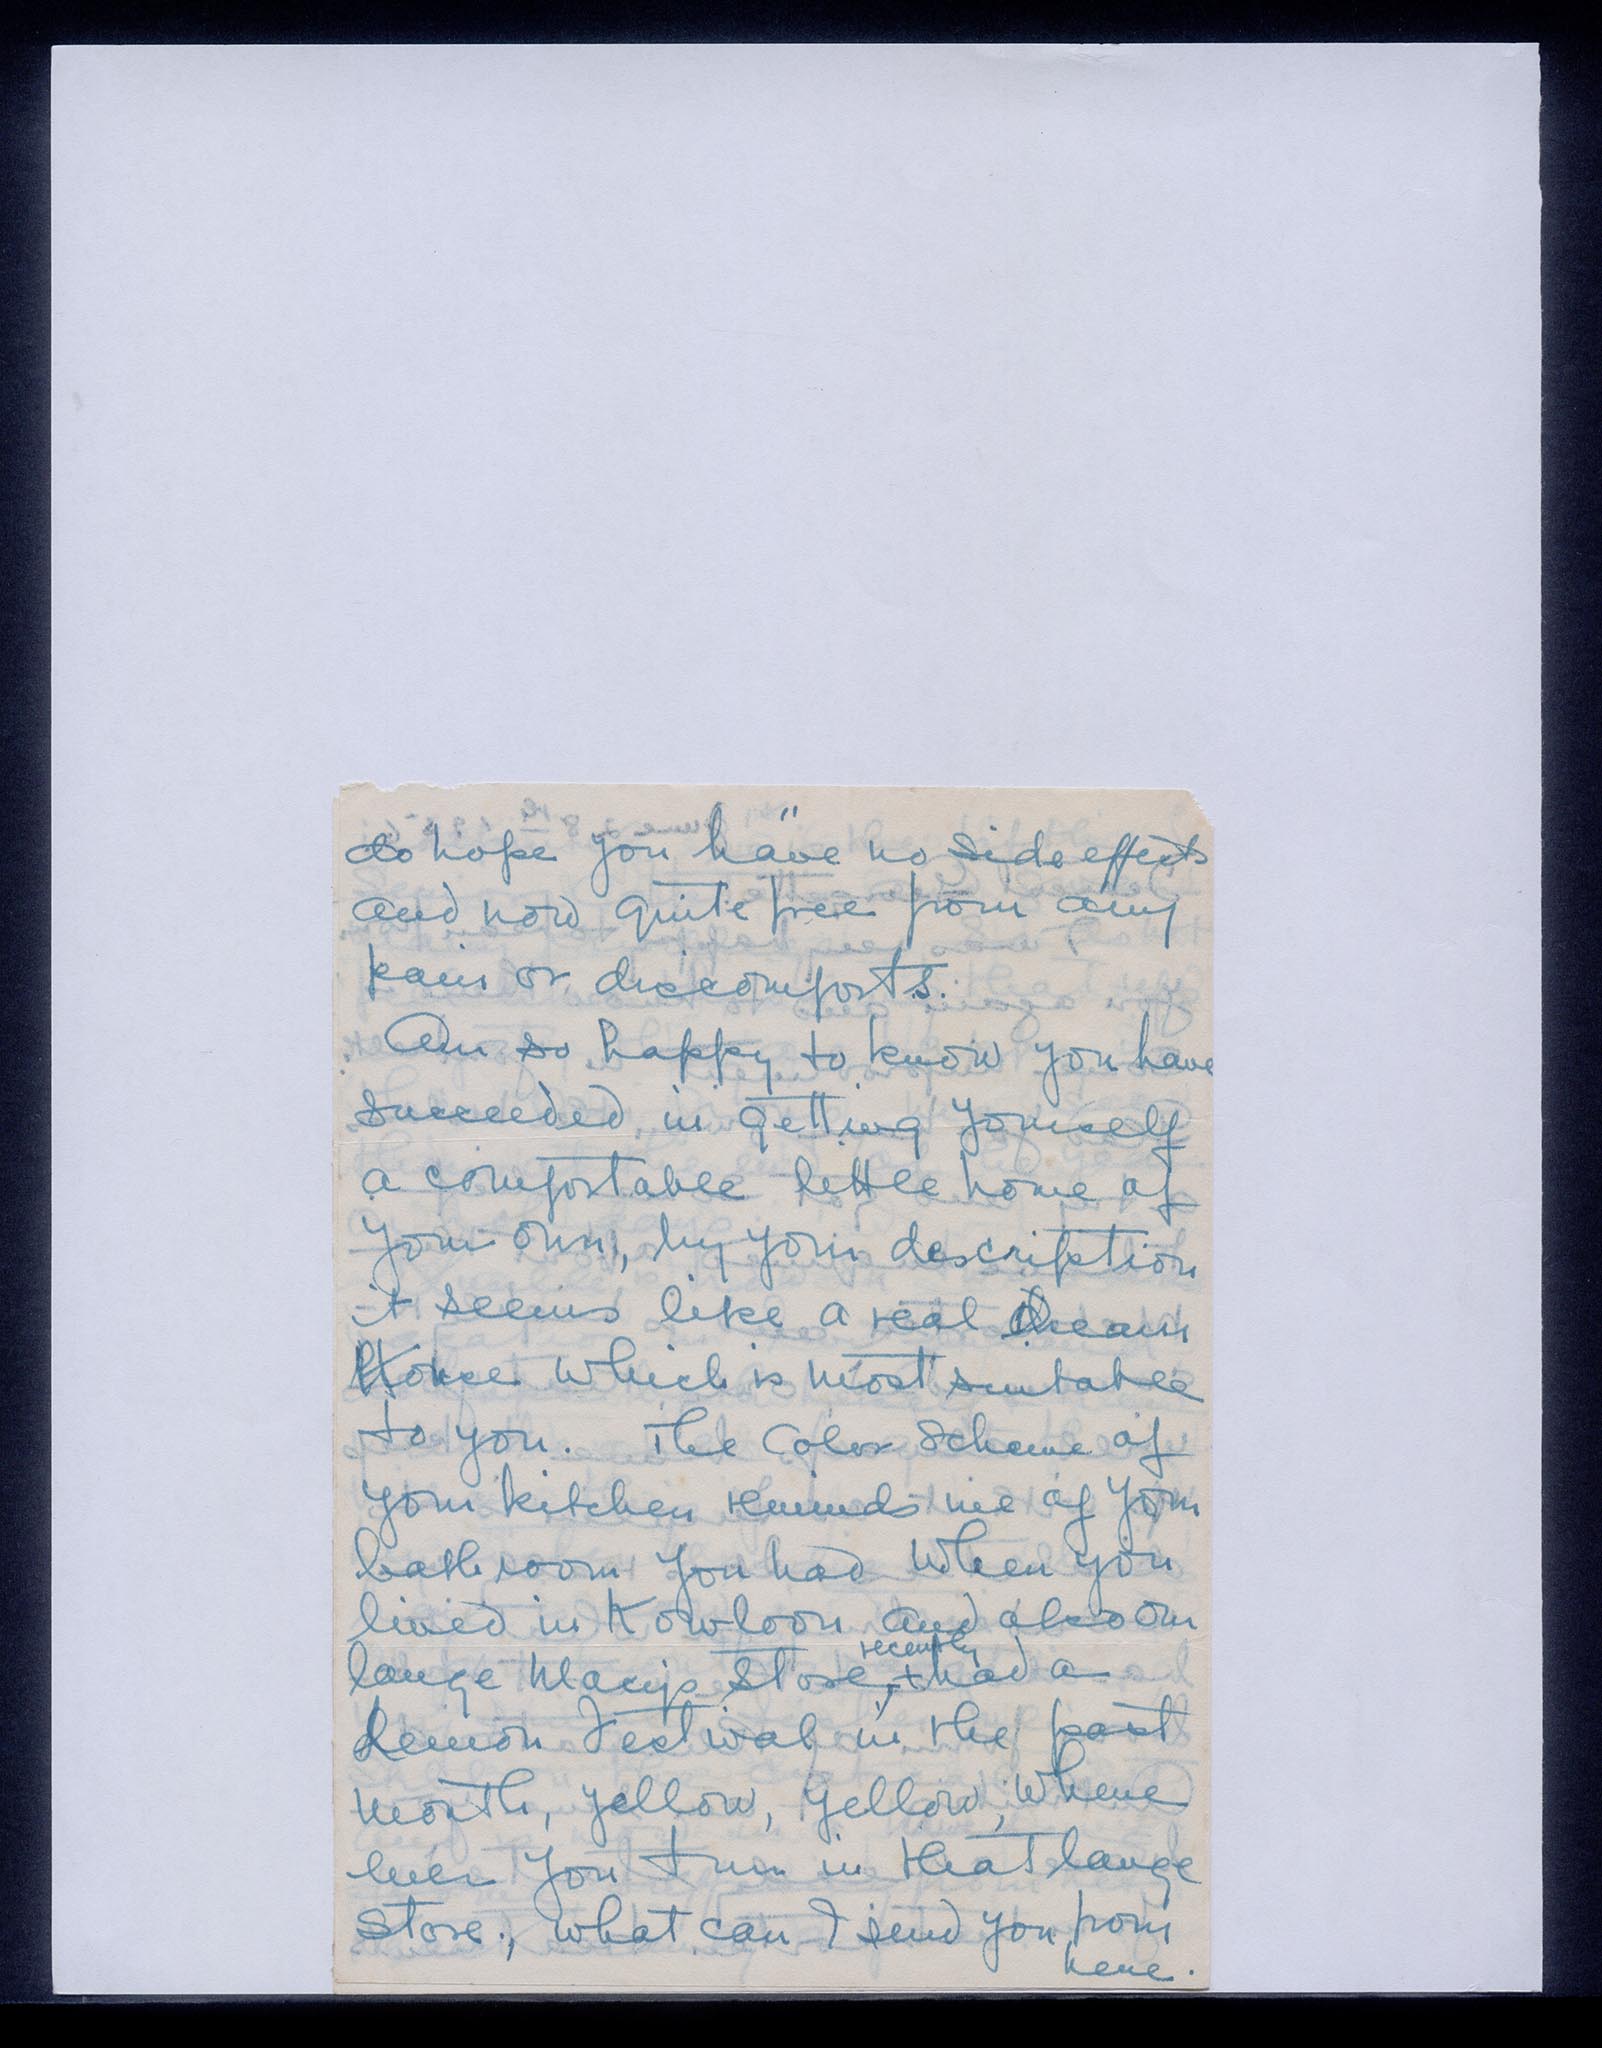 do hope you have no side effects
and now quite free from any
pain or discomforts.
Am so happy to know you have
succeeded in getting yourself
a comfortable little home of
your own, by your description
it seems like a real dream
House which is most suitable
to you. The Color Scheme of
your kitchen reminds me of your
bathroom you had when you
lived in Kowloon and also our
large Macys Store, recently + had a
Lemon Festival in the past
month, yellow, yellow, where
ever you turn in that large
store., what can I send you from
here.